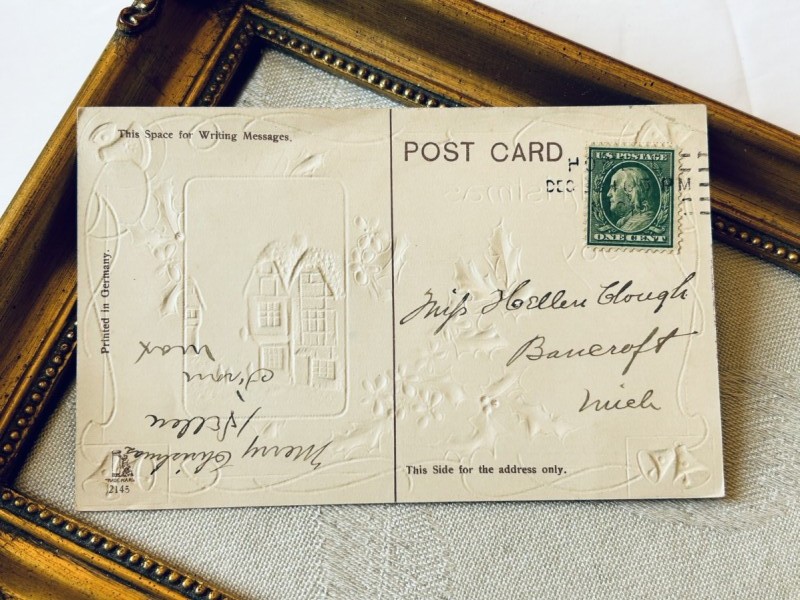 This Space for Writing Messages.
Printed in Germany.
Merry Christmas
Hellen
from
Max
TRADE-MARK
2145
POST CARD
DEC
PM
U.S. POSTAGE
ONE CENT
Miss Hellen Clough
Bancroft
Mich
This Side for the address only.